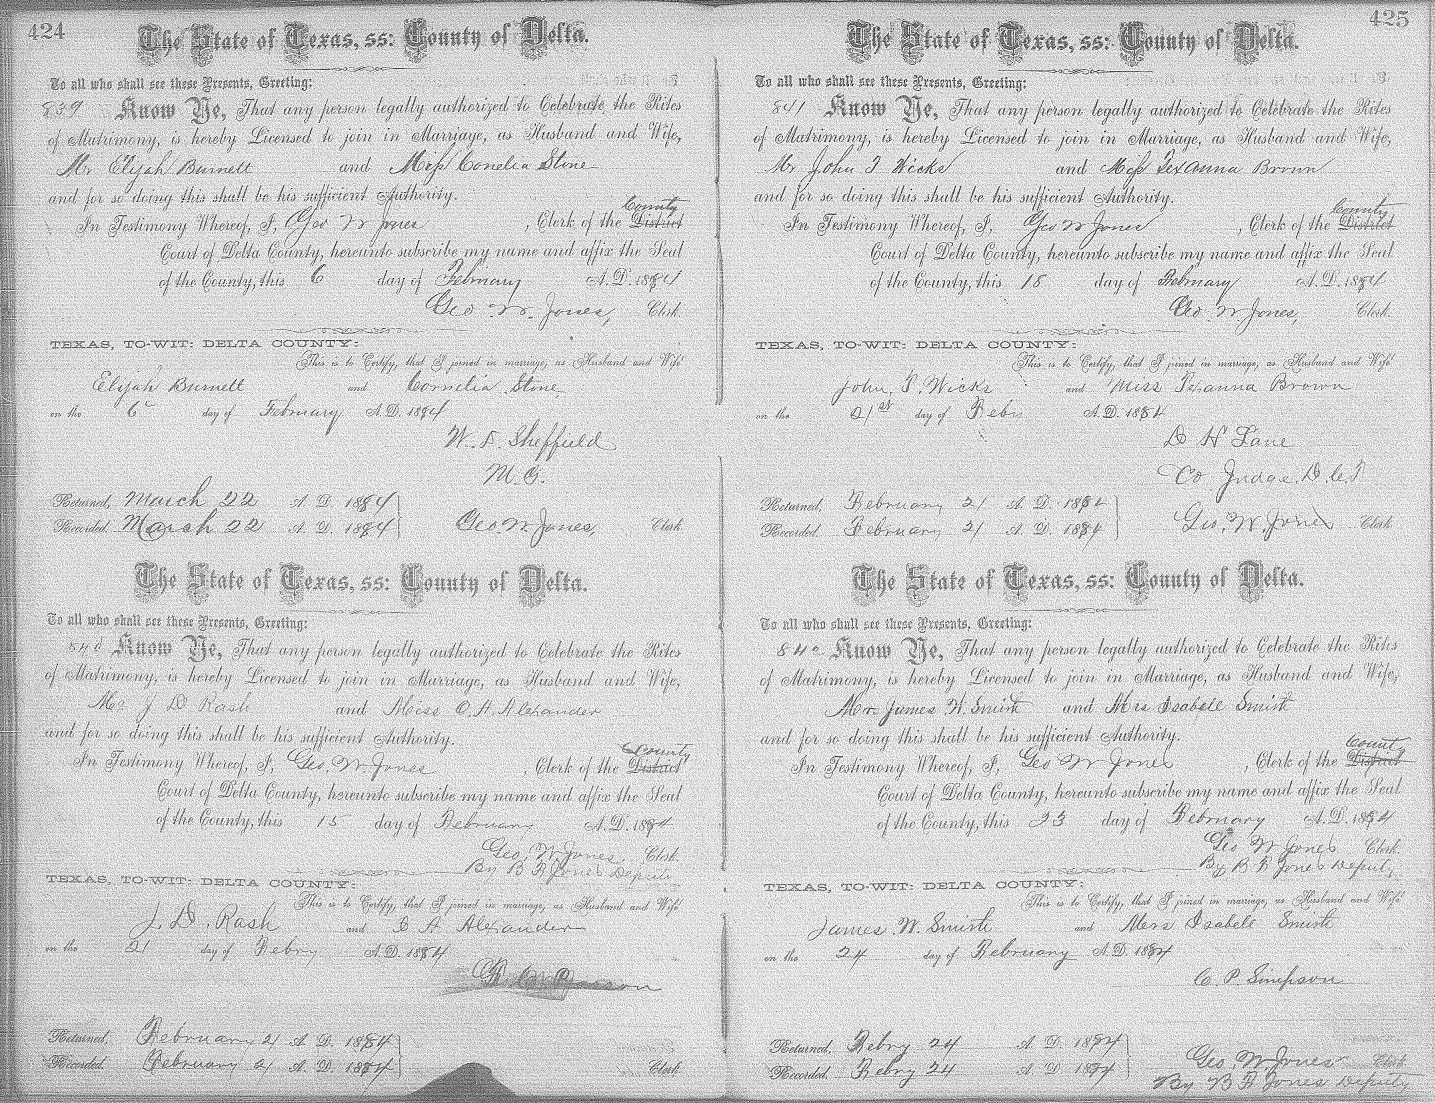 424
The State of Texas, ss: County of Delta.
To all who shall see these Presents, Greeting:
839 Know Ye, That any person legally authorized to Celebrate the Rites
of Matrimony, is hereby Licensed to join in Marriage, as Husband and Wife,
Mr Elijah Burnett and Miss Conelia Stine
and for so doing this shall be his sufficient Authority.
County
In Testimony Whereof, I, Geo W Jones, Clerk of the District
Court of Delta County, hereunto subscribe my name and affix the Seal
of the County, this 6 day of February A. D. 1884
Geo. W. Jones, Clerk.
TEXAS, TO-WIT: DELTA COUNTY:
This is to Certify, that I joined in marriage, as Husband and Wife
Elijah Burnett and Cornelia Stine
on the 6 day of February A. D. 1884
W. D. Sheffield
M. G.
Returned, March 22 A. D. 1884
Recorded. March 22 A. D. 1884 Geo. W. Jones, Clerk
The State of Texas, ss: County of Delta.
To all who shall see these Presents, Greeting:
Know Ye, That any person legally authorized to Celebrate the Rites
of Matrimony, is hereby Licensed to join in Marriage, as Husband and Wife,
Mr J D Rash and Miss C. H. Alexander
and for so doing this shall be his sufficient Authority.
County
In Testimony Whereof, I, Geo. W. Jones, Clerk of the District
Court of Delta County, hereunto subscribe my name and affix the Seal
of the County, this 15 day of February A. D. 1884
Geo. W. Jones Clerk.
By B F Jones Deputy
TEXAS, TO-WIT: DELTA COUNTY:
This is to Certify, that I joined in marriage, as Husband and Wife
J. D. Rash and C H Alexander
on the 21 day of Febry A. D. 1884
Returned, February 21 A. D. 1884
Recorded. February 21 A. D. 1884 Clerk
425
The State of Texas, ss: County of Delta.
To all who shall see these Presents, Greeting:
841 Know Ye, That any person legally authorized to Celebrate the Rites
of Matrimony, is hereby Licensed to join in Marriage, as Husband and Wife,
Mr John T Wicks and Miss Texanna Brown
and for so doing this shall be his sufficient Authority.
County
In Testimony Whereof, I, Geo W Jones, Clerk of the District
Court of Delta County, hereunto subscribe my name and affix the Seal
of the County, this 18 day of February A. D. 1884
Geo W Jones, Clerk.
TEXAS, TO-WIT: DELTA COUNTY:
This is to Certify, that I joined in marriage, as Husband and Wife
John. T. Wicks and Miss Texanna Brown
on the 21st day of A. D. 1884
D H Lane
Co Judge. D. C. T
Returned, February 21 A. D. 1884
Recorded. February 21 A. D. 1884 Geo. W. Jones Clerk
The State of Texas, ss: County of Delta.
To all who shall see these Presents, Greeting:
842 Know Ye, That any person legally authorized to Celebrate the Rites
of Matrimony, is hereby Licensed to join in Marriage, as Husband and Wife,
Mr James W. Smith and Mrs Isabell Smith
and for so doing this shall be his sufficient Authority.
County
In Testimony Whereof, I, Geo W Jones, Clerk of the District
Court of Delta County, hereunto subscribe my name and affix the Seal
of the County, this 23 day of February A. D. 1884
Geo W Jones Clerk.
By B F Jones Deputy
TEXAS, TO-WIT: DELTA COUNTY:
This is to Certify, that I joined in marriage, as Husband and Wife
James. W. Smith and Mers Isabell Smith
on the 24 day of February A. D. 1884
C. P. Simpson
Returned, Febry 24 A. D. 1884
Recorded. Febry 24 A. D. 1884 Geo. W. Jones Clerk
By B F Jones Deputy